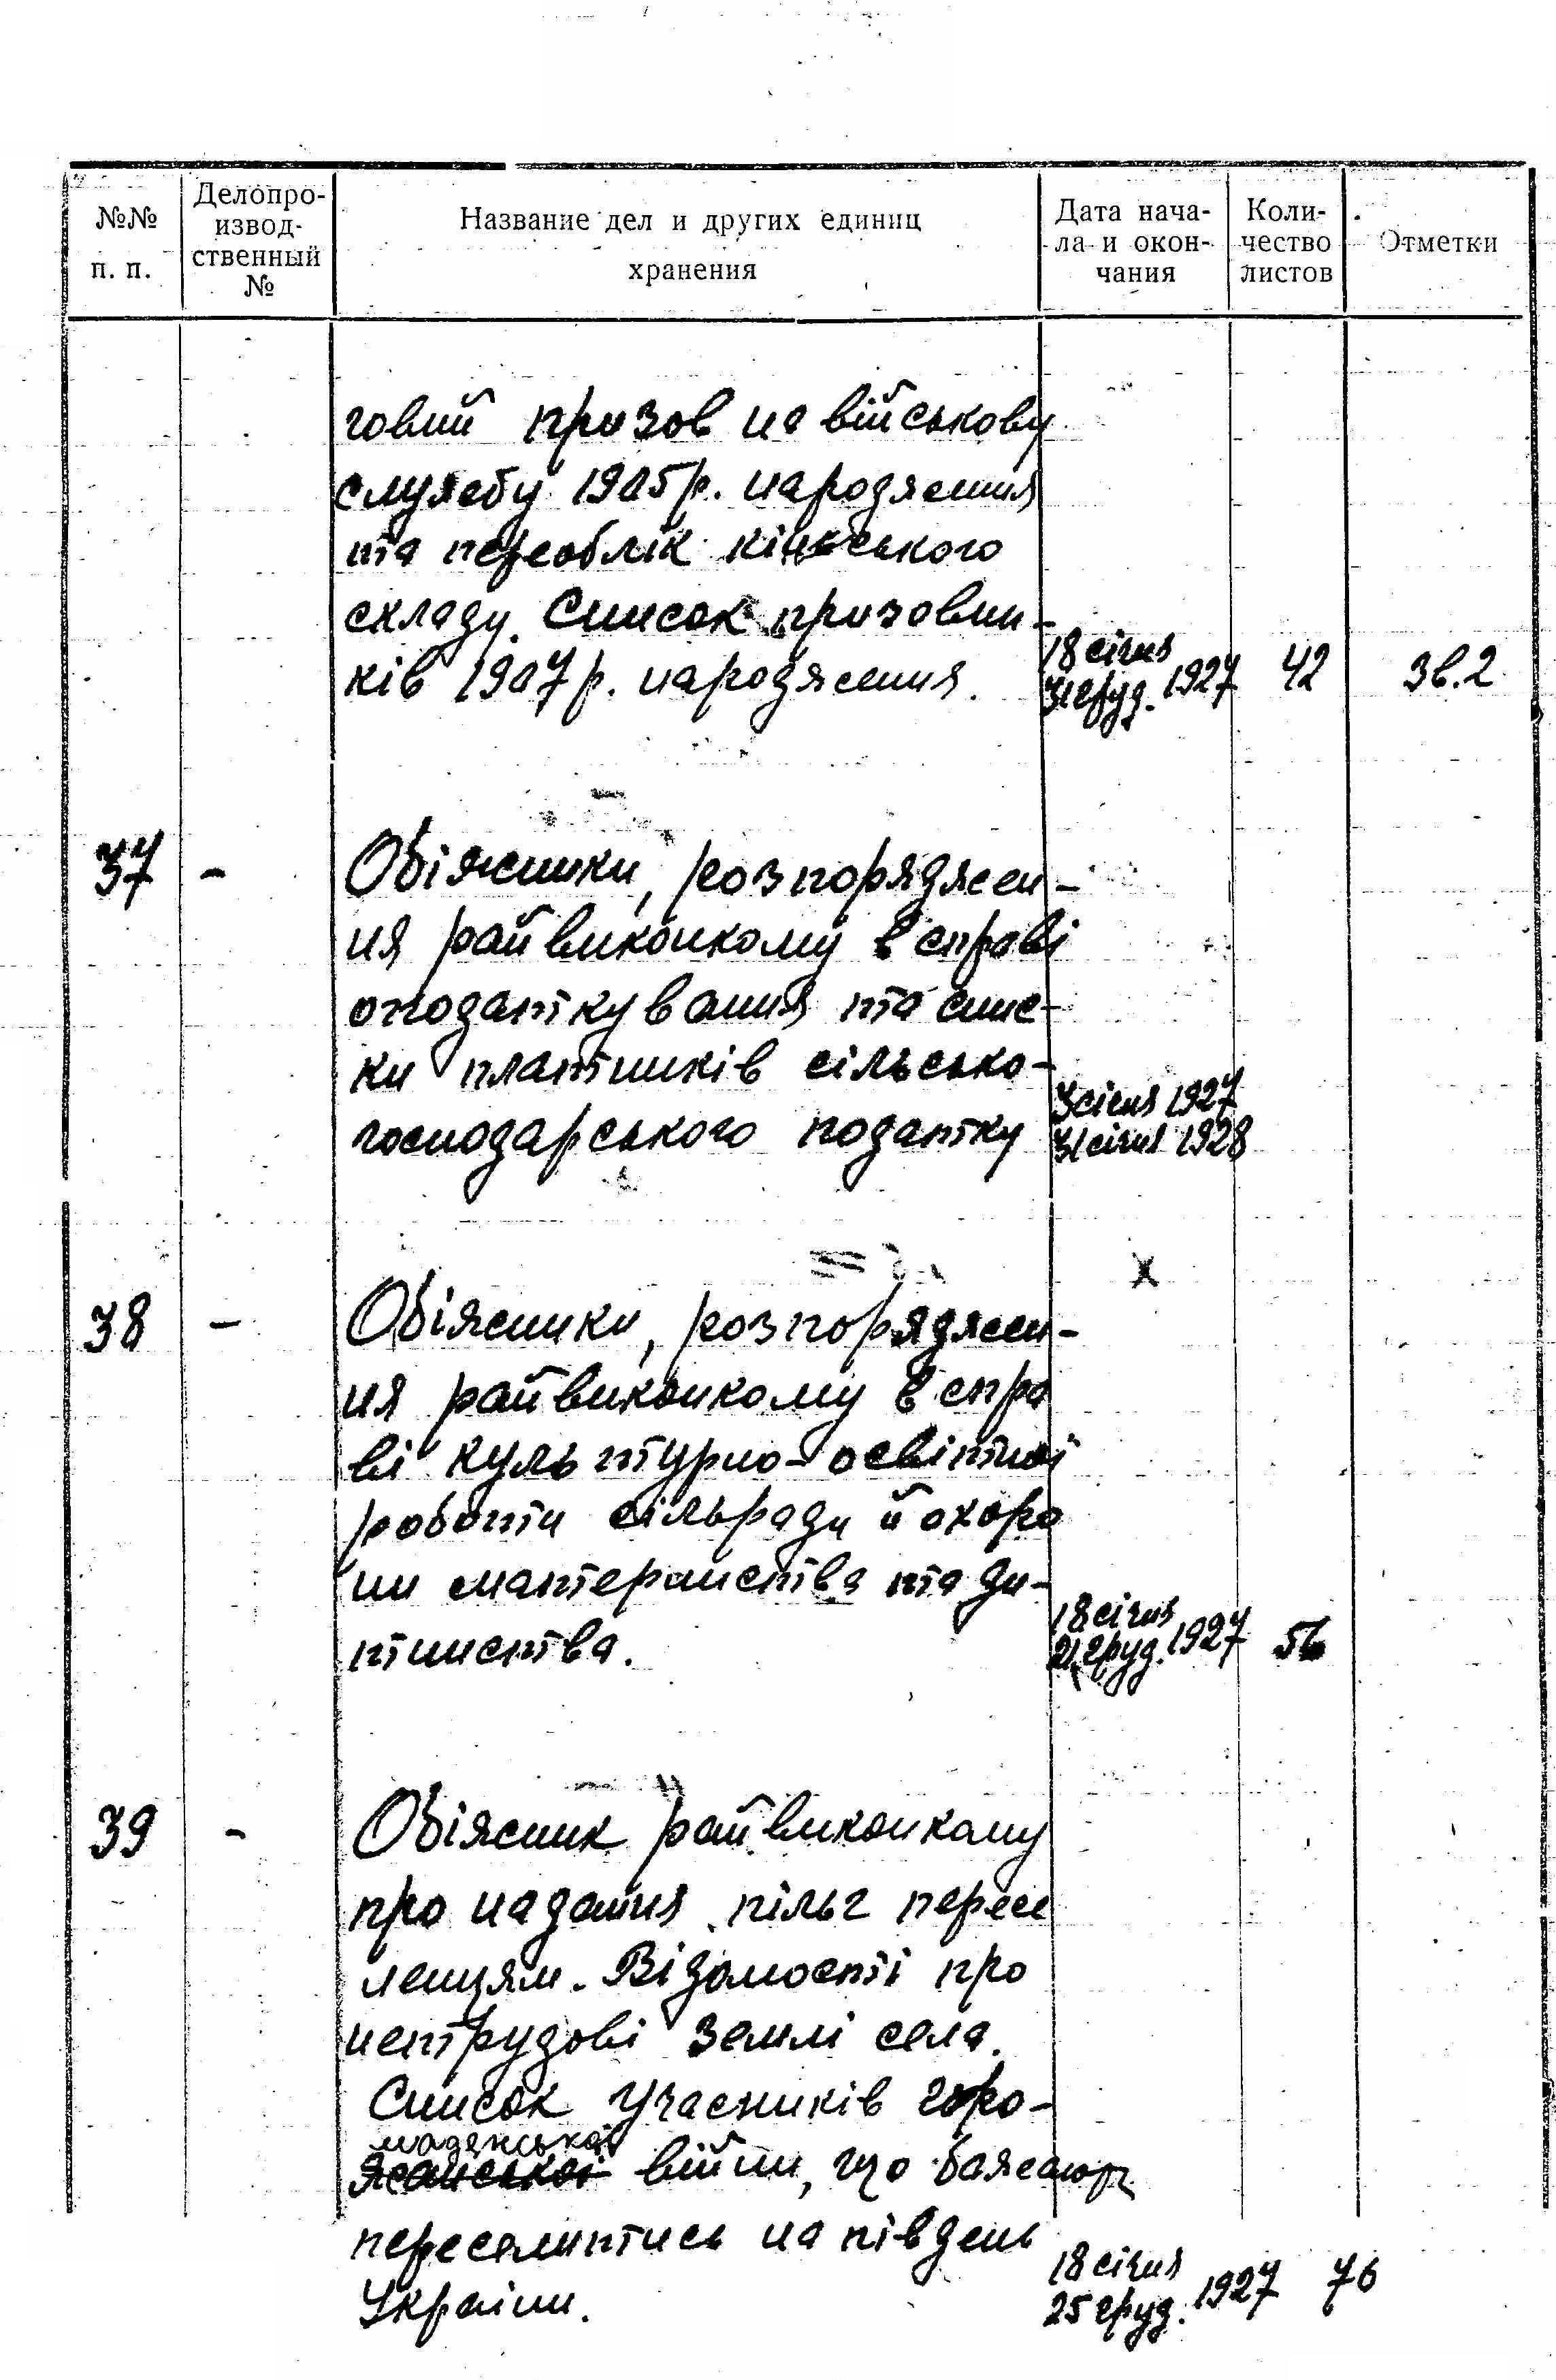 №№
п. п.
Делопро-
извод-
ственный
№
Название дел и других единиц
хранения
Дата нача-
ла и окон-
чания
Коли-
чество
листов
Отметки
говий призов на військову
службу 1905 р. народження
та переоблік кінського
складу. Список призовни-
ків 1907 р. народження. 18 січня 31 груд. 1927 42 Зв. 2
37 - Обіжники, розпоряджен-
ня райвиконкому в справі
оподаткування та спис-
ки платників сільсько-
господарського податку 3 січня 1927
31 січня 1928
х
38 - Обіжники, розпоряджен-
ня райвиконкому в спра
ві культурно-освітньої
роботи сільради й охоро
ни материнства та ди-
тинства. 18 січня 21 груд. 1927 56
39 - Обіжник райвиконкому
про надання пільг пересе
ленцям. Відомості про
нетрудові землі села.
Список учасників гро-
мадянської
війни, що бажають
переселитись на південь
України. 18 січня 25 груд. 1927 76